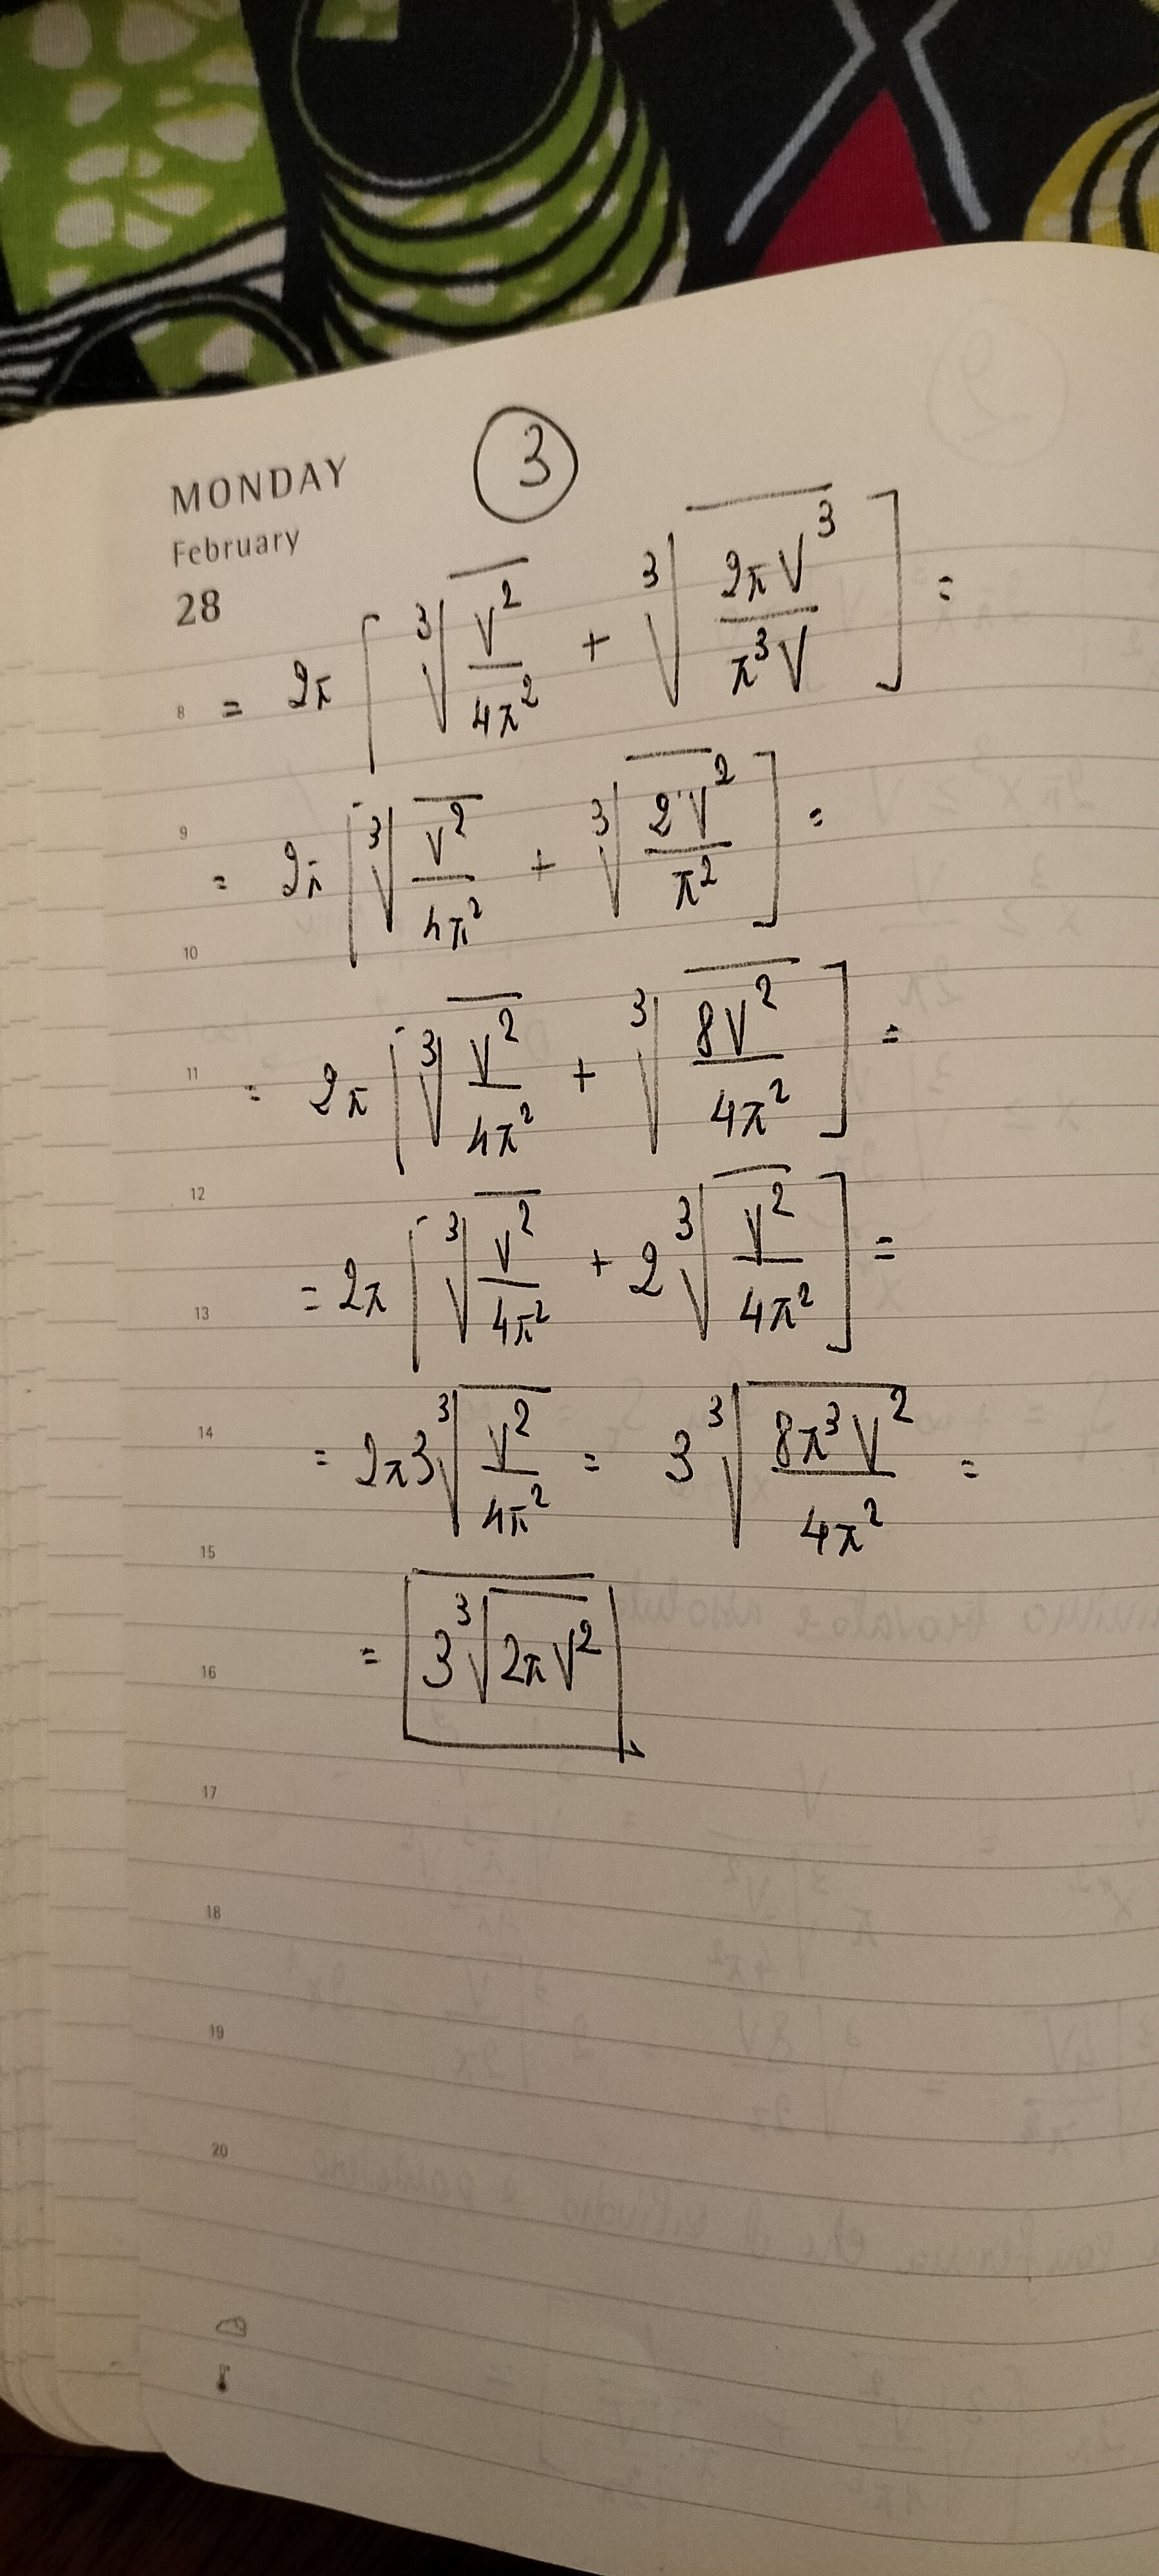 3
MONDAY
February
28
8 = 2π [ ∛(V²/4π²) + ∛(2πV³/π³V) ] =
9
= 2π [ ∛(V²/4π²) + ∛(2V²/π²) ] =
10
11 = 2π [ ∛(V²/4π²) + ∛(8V²/4π²) ] =
12
= 2π [ ∛(V²/4π²) + 2∛(V²/4π²) ] =
13
14 = 2π3∛(V²/4π²) = 3∛(8π³V²/4π²) =
15
16 = 3∛(2πV²)
17
18
19
20